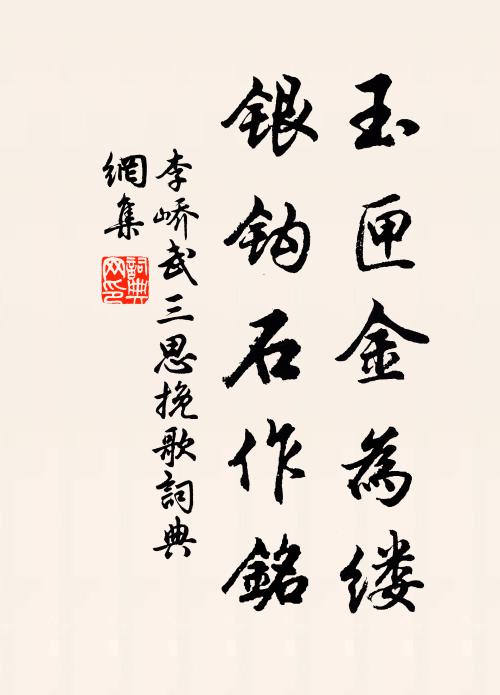 玉匣金為缕
银钩石作銘
李峤武三思挽歌詞典
網集
詞典
网印